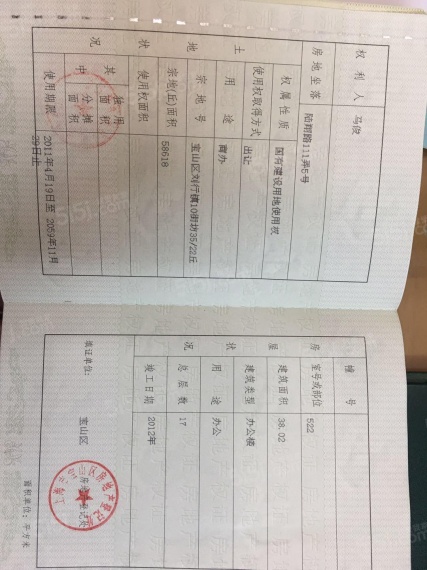 权利人 马俊
房地坐落 陆翔路111弄5号
土地状况
权属性质 国有建设用地使用权
使用权取得方式 出让
用途 商办
宗地号 宝山区刘行镇10街坊35/22丘
宗地(丘)面积 58618
使用权面积
其中
独用面积
分摊面积
使用期限 2011年4月19日至 2059年11月
29日止
房屋状况
幢号
室号或部位 522
建筑面积 38.02
建筑类型 办公楼
用途 办公
总层数 17
竣工日期 2012年
填证单位: 宝山区
房地产登记处
面积单位: 平方米